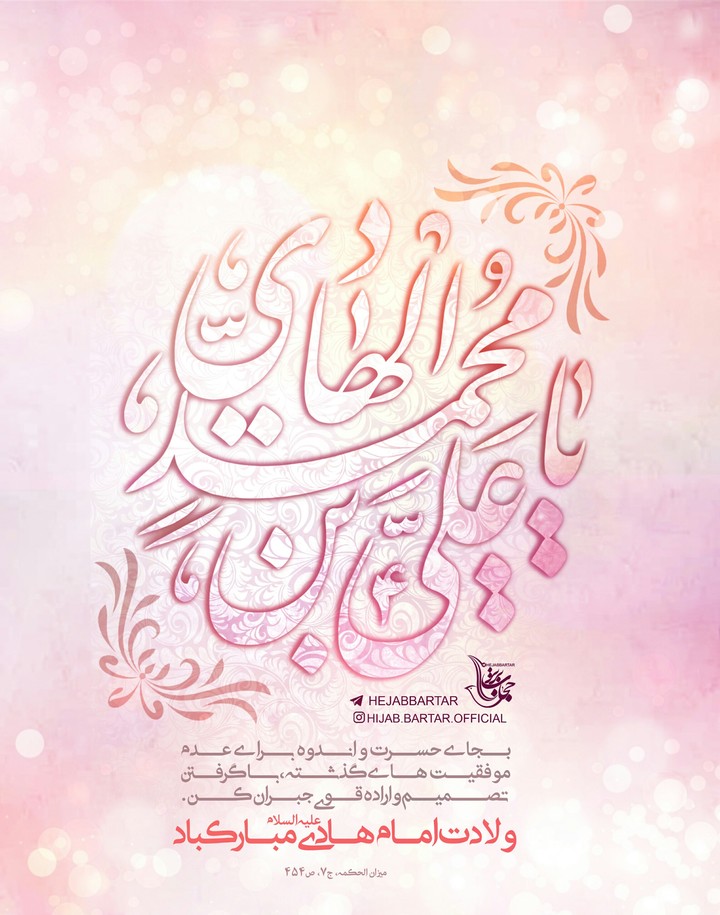 یا علی بن محمد الهادی
HEJABBARTAR
حجاب برتر
HEJABBARTAR
HIJAB.BARTAR.OFFICIAL
بجای حسرت و اندوه برای عدم
موفقیت های گذشته، با گرفتن
تصمیم و اراده قوی جبران کن.
ولادت امام هادی علیه السلام مبارکباد
میزان الحکمه، ج۷، ص۴۵۴